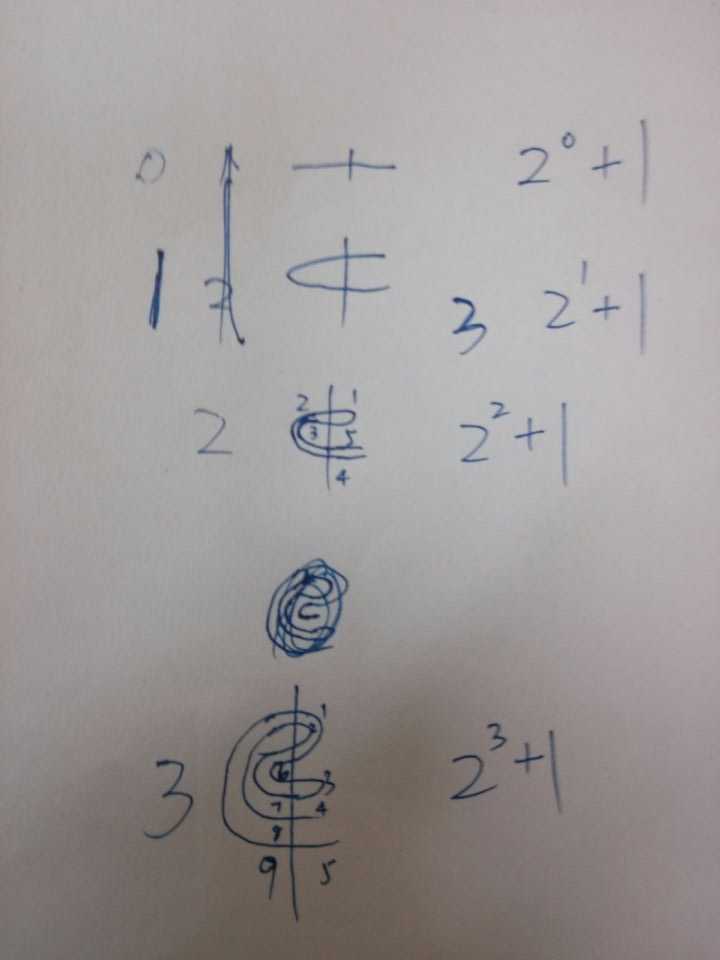 0 2⁰+1
1 2 3 2¹+1
2 2 1 3 5 4 2²+1
3 1 2 6 3 7 4 8 9 5 2³+1